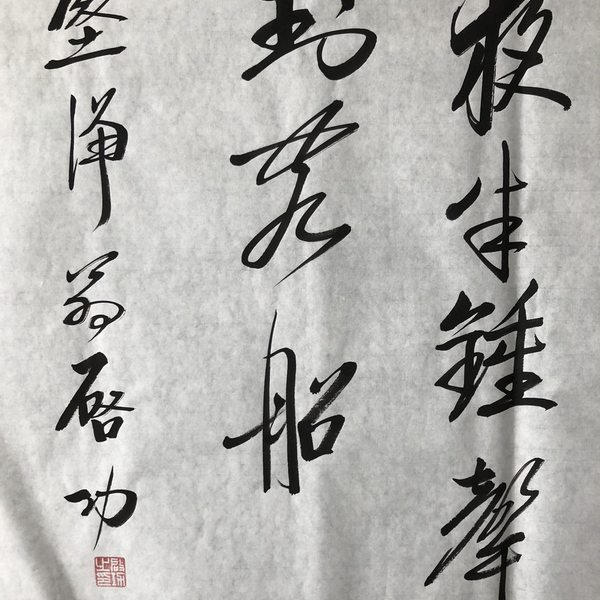 夜半鍾聲
到客船
堅淨翁啓功